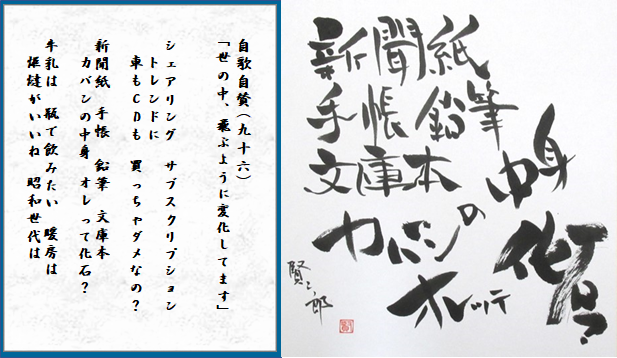 自歌自賛(九十六)
「世の中、飛ぶように変化してます」
シェアリング サブスクリプション
トレンドに
車もCDも 買っちゃダメなの?
新聞紙 手帳 鉛筆 文庫本
カバンの中身 オレって化石?
牛乳は 瓶で飲みたい 暖房は
炬燵がいいね 昭和世代は
新聞紙
手帳 鉛筆
文庫本
カバンの
中身
オレッテ
化石?